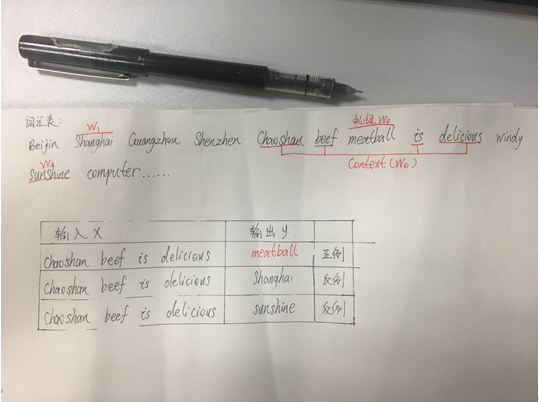 词汇表:
W1 中心词 W0
Beijin Shanghai Guangzhou Shenzhen Chaoshan beef meatball is delicious windy
W2 Context(W0)
sunshine computer......
输入X 输出y
Chaoshan beef is delicious meatball 正例
Chaoshan beef is delicious Shanghai 负例
Chaoshan beef is delicious sunshine 负例